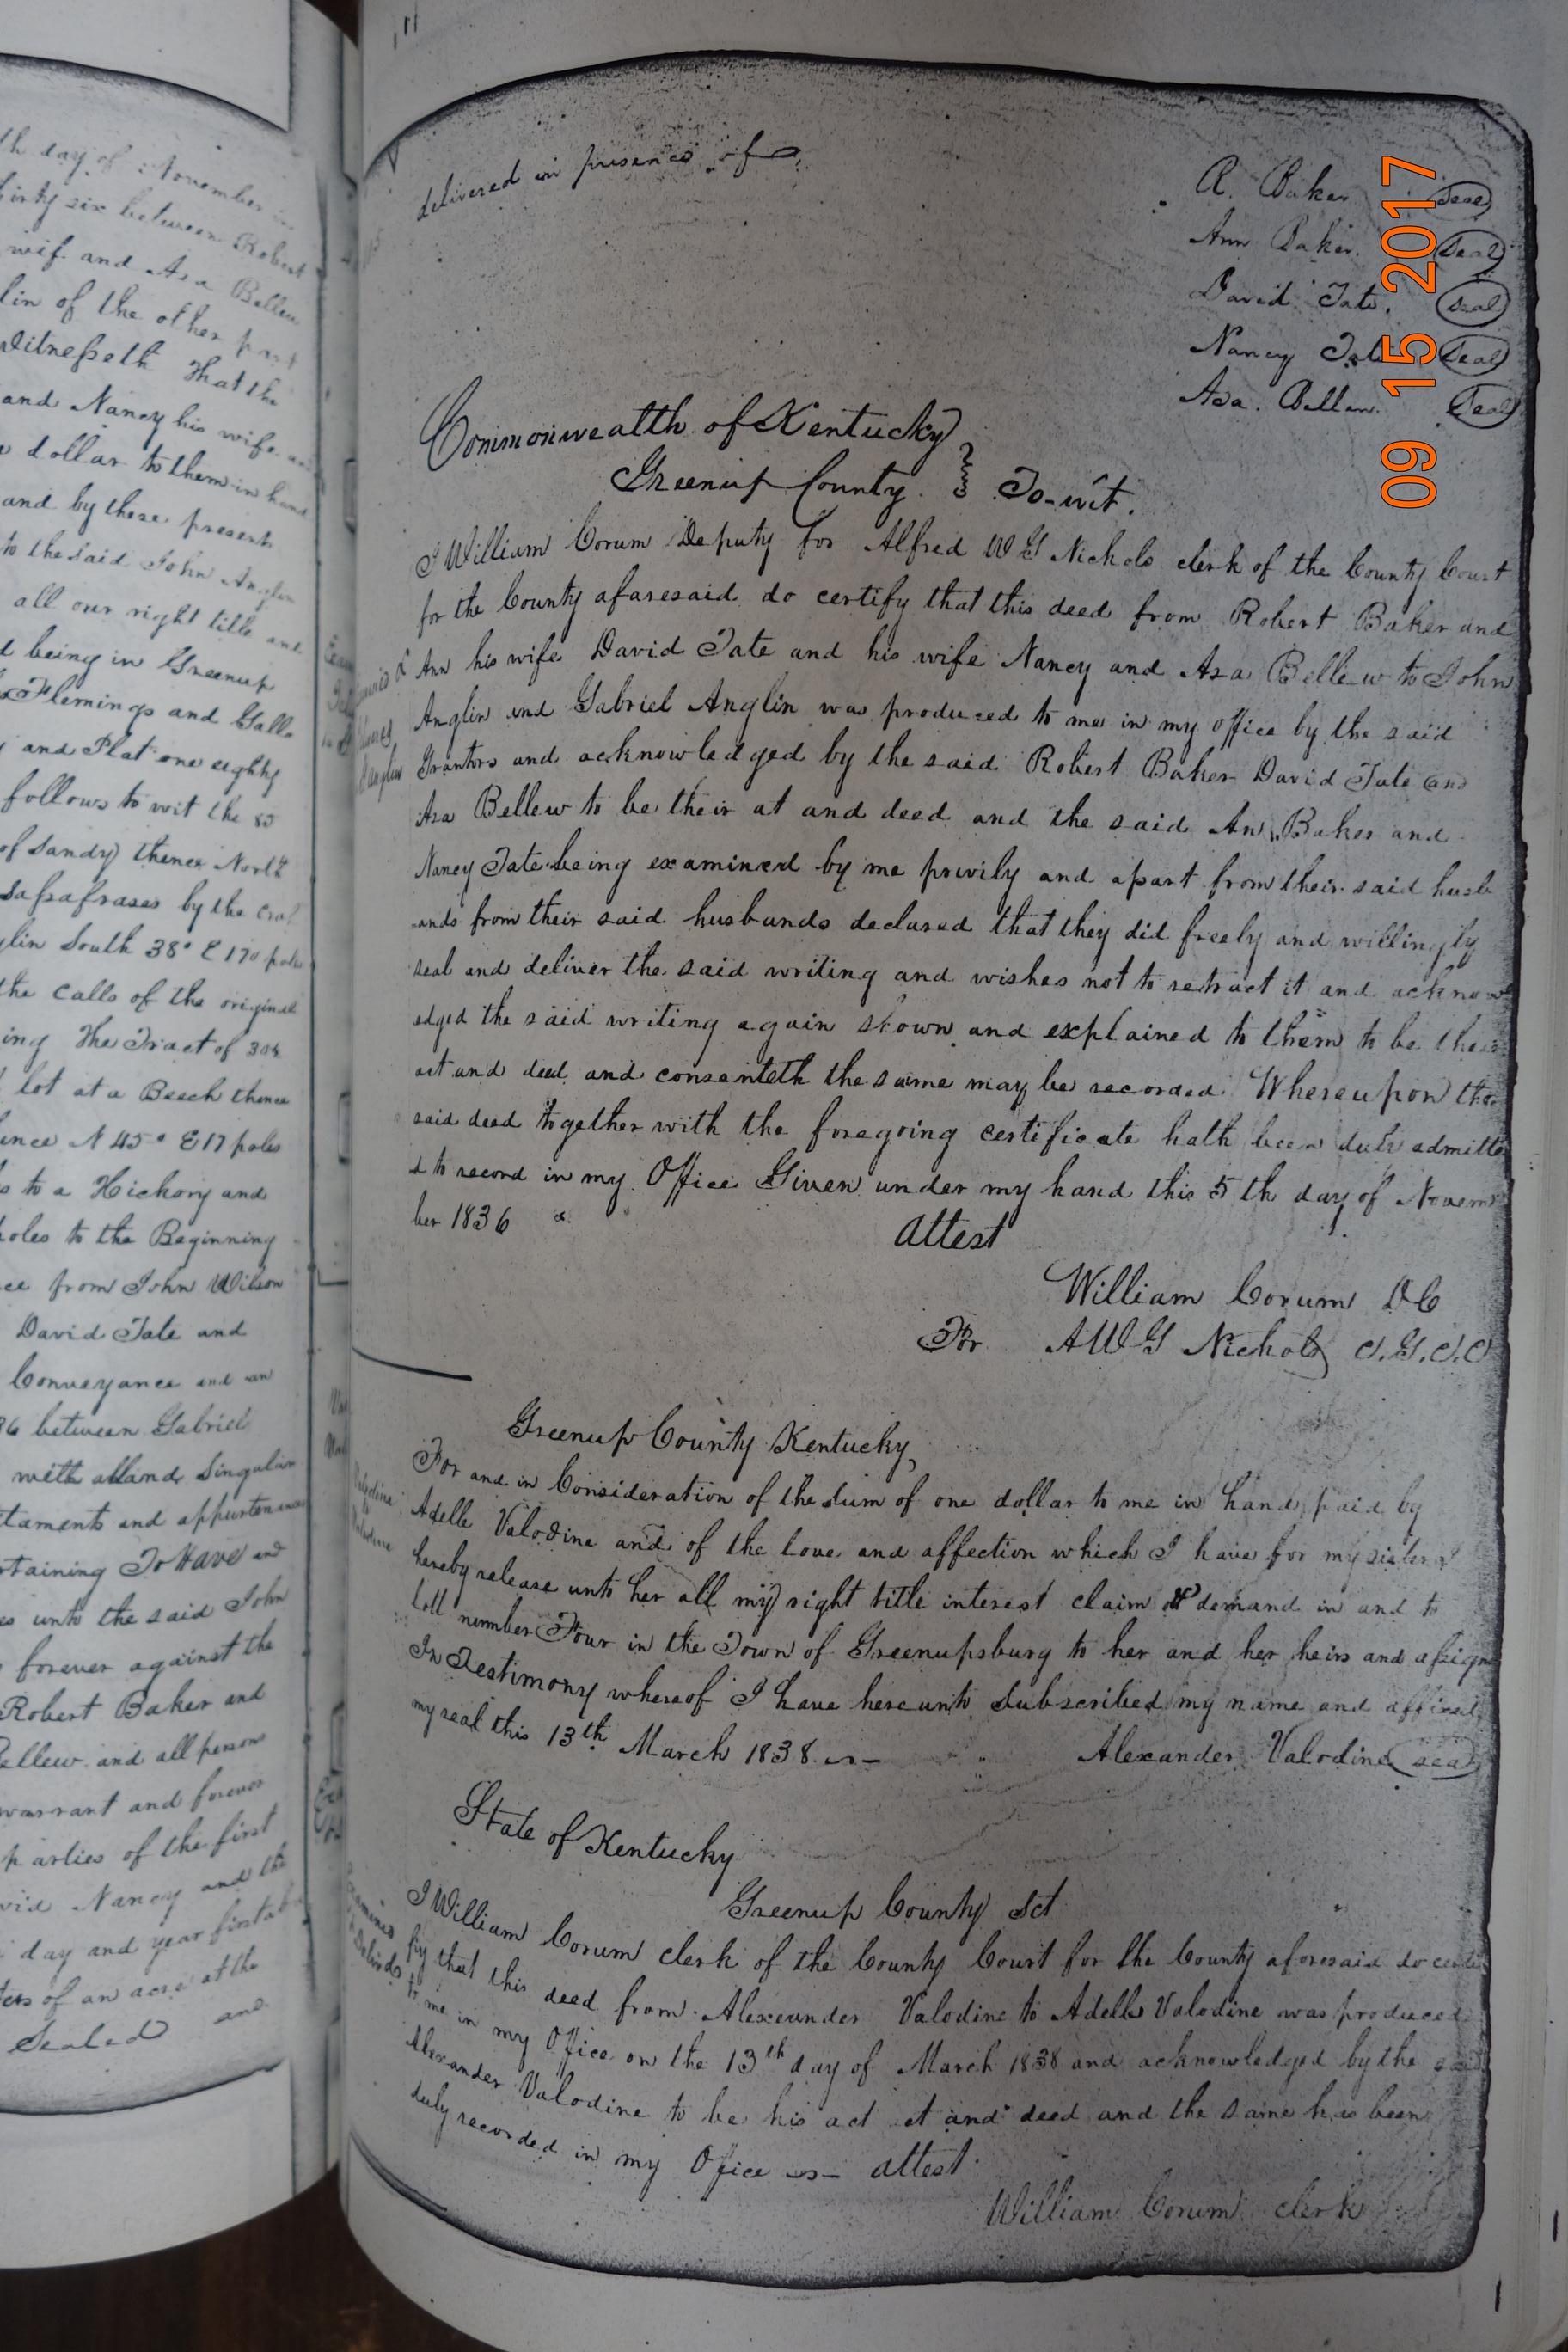 th day of November in
hirty six between Robert
wif and Asa Bellew
lin of the other part
Witnesseth That the
and Nancy his wife
dollar to them in hand
and by these presents
to the said John Anglin
all our right title and
d being in Greenup
Flemings and Galls
and Plat one eighty
follows to wit the 85
of Sandy thence North
sasafrases by the
lin South 38° E 170 poles
the calls of the original
ing The Tract of 304
lot at a Beech thence
ence N 45° E 17 poles
to a Hickory and
poles to the Beginning
ce from John Wilson
David Tate and
Conveyance and an
36 between Gabriel
with all and Singular
taments and appurtenances
rtaining To Have and
es unto the said John
forever against the
Robert Baker and
Bellew and all persons
warrant and forever
parties of the first
vid Nancy and the
day and year first ab
ters of an acre at the
Sealed and
delivered in presence of
A. Baker seal
Ann Baker. Seal
David Tate. seal
Nancy Tate Seal
Asa. Bellew. Seal
09 15 2017
Commonwealth of Kentucky
Greenup County. To-wit.
I William Corum Deputy for Alfred W G Nichols clerk of the County Court
for the County afaresaid do certify that this deed from Robert Baker and
Ann his wife David Tate and his wife Nancy and Asa Bellew to John
Anglin and Gabriel Anglin was produced to me in my office by the said
Grantors and acknowledged by the said Robert Baker David Tate and
Asa Bellew to be their at and deed and the said An Baker and
Nancy Tate being examined by me privily and apart from their said husb
ands from their said husbands declared that they did freely and willingly
seal and deliver the said writing and wishes not to retract it and acknow
edged the said writing again shown and explained to them to be their
act and deed and consenteth the same may be recorded Whereupon the
said deed together with the foregoing certificate hath been duly admitte
d to record in my Office Given under my hand this 5th day of Novem
ber 1836
Attest
William Corum DC
For AWG Nichols C.G.C.C
Greenup County Kentucky,
For and in Consideration of the Sum of one dollar to me in hand paid by
Adelle Valodine and of the love and affection which I have for my sister I
hereby release unto her all my right title interest claim & demand in and to
lott number Four in the Town of Greenupsburg to her and her heirs and assigns
In Testimony whereof I have hereunto Subscribed my name and affixed
my seal this 13th March 1838
Alexander Valodine seal
State of Kentucky
Greenup County Sct
I William Corum clerk of the County Court for the County aforesaid do certi
fy that this deed from Alexander Valodine to Adelle Valodine was produced
to me in my Office on the 13th day of March 1838 and acknowledged by the said
Alexander Valodine to be his act et and deed and the same has been
duly recorded in my Office attest
William Corum clerk